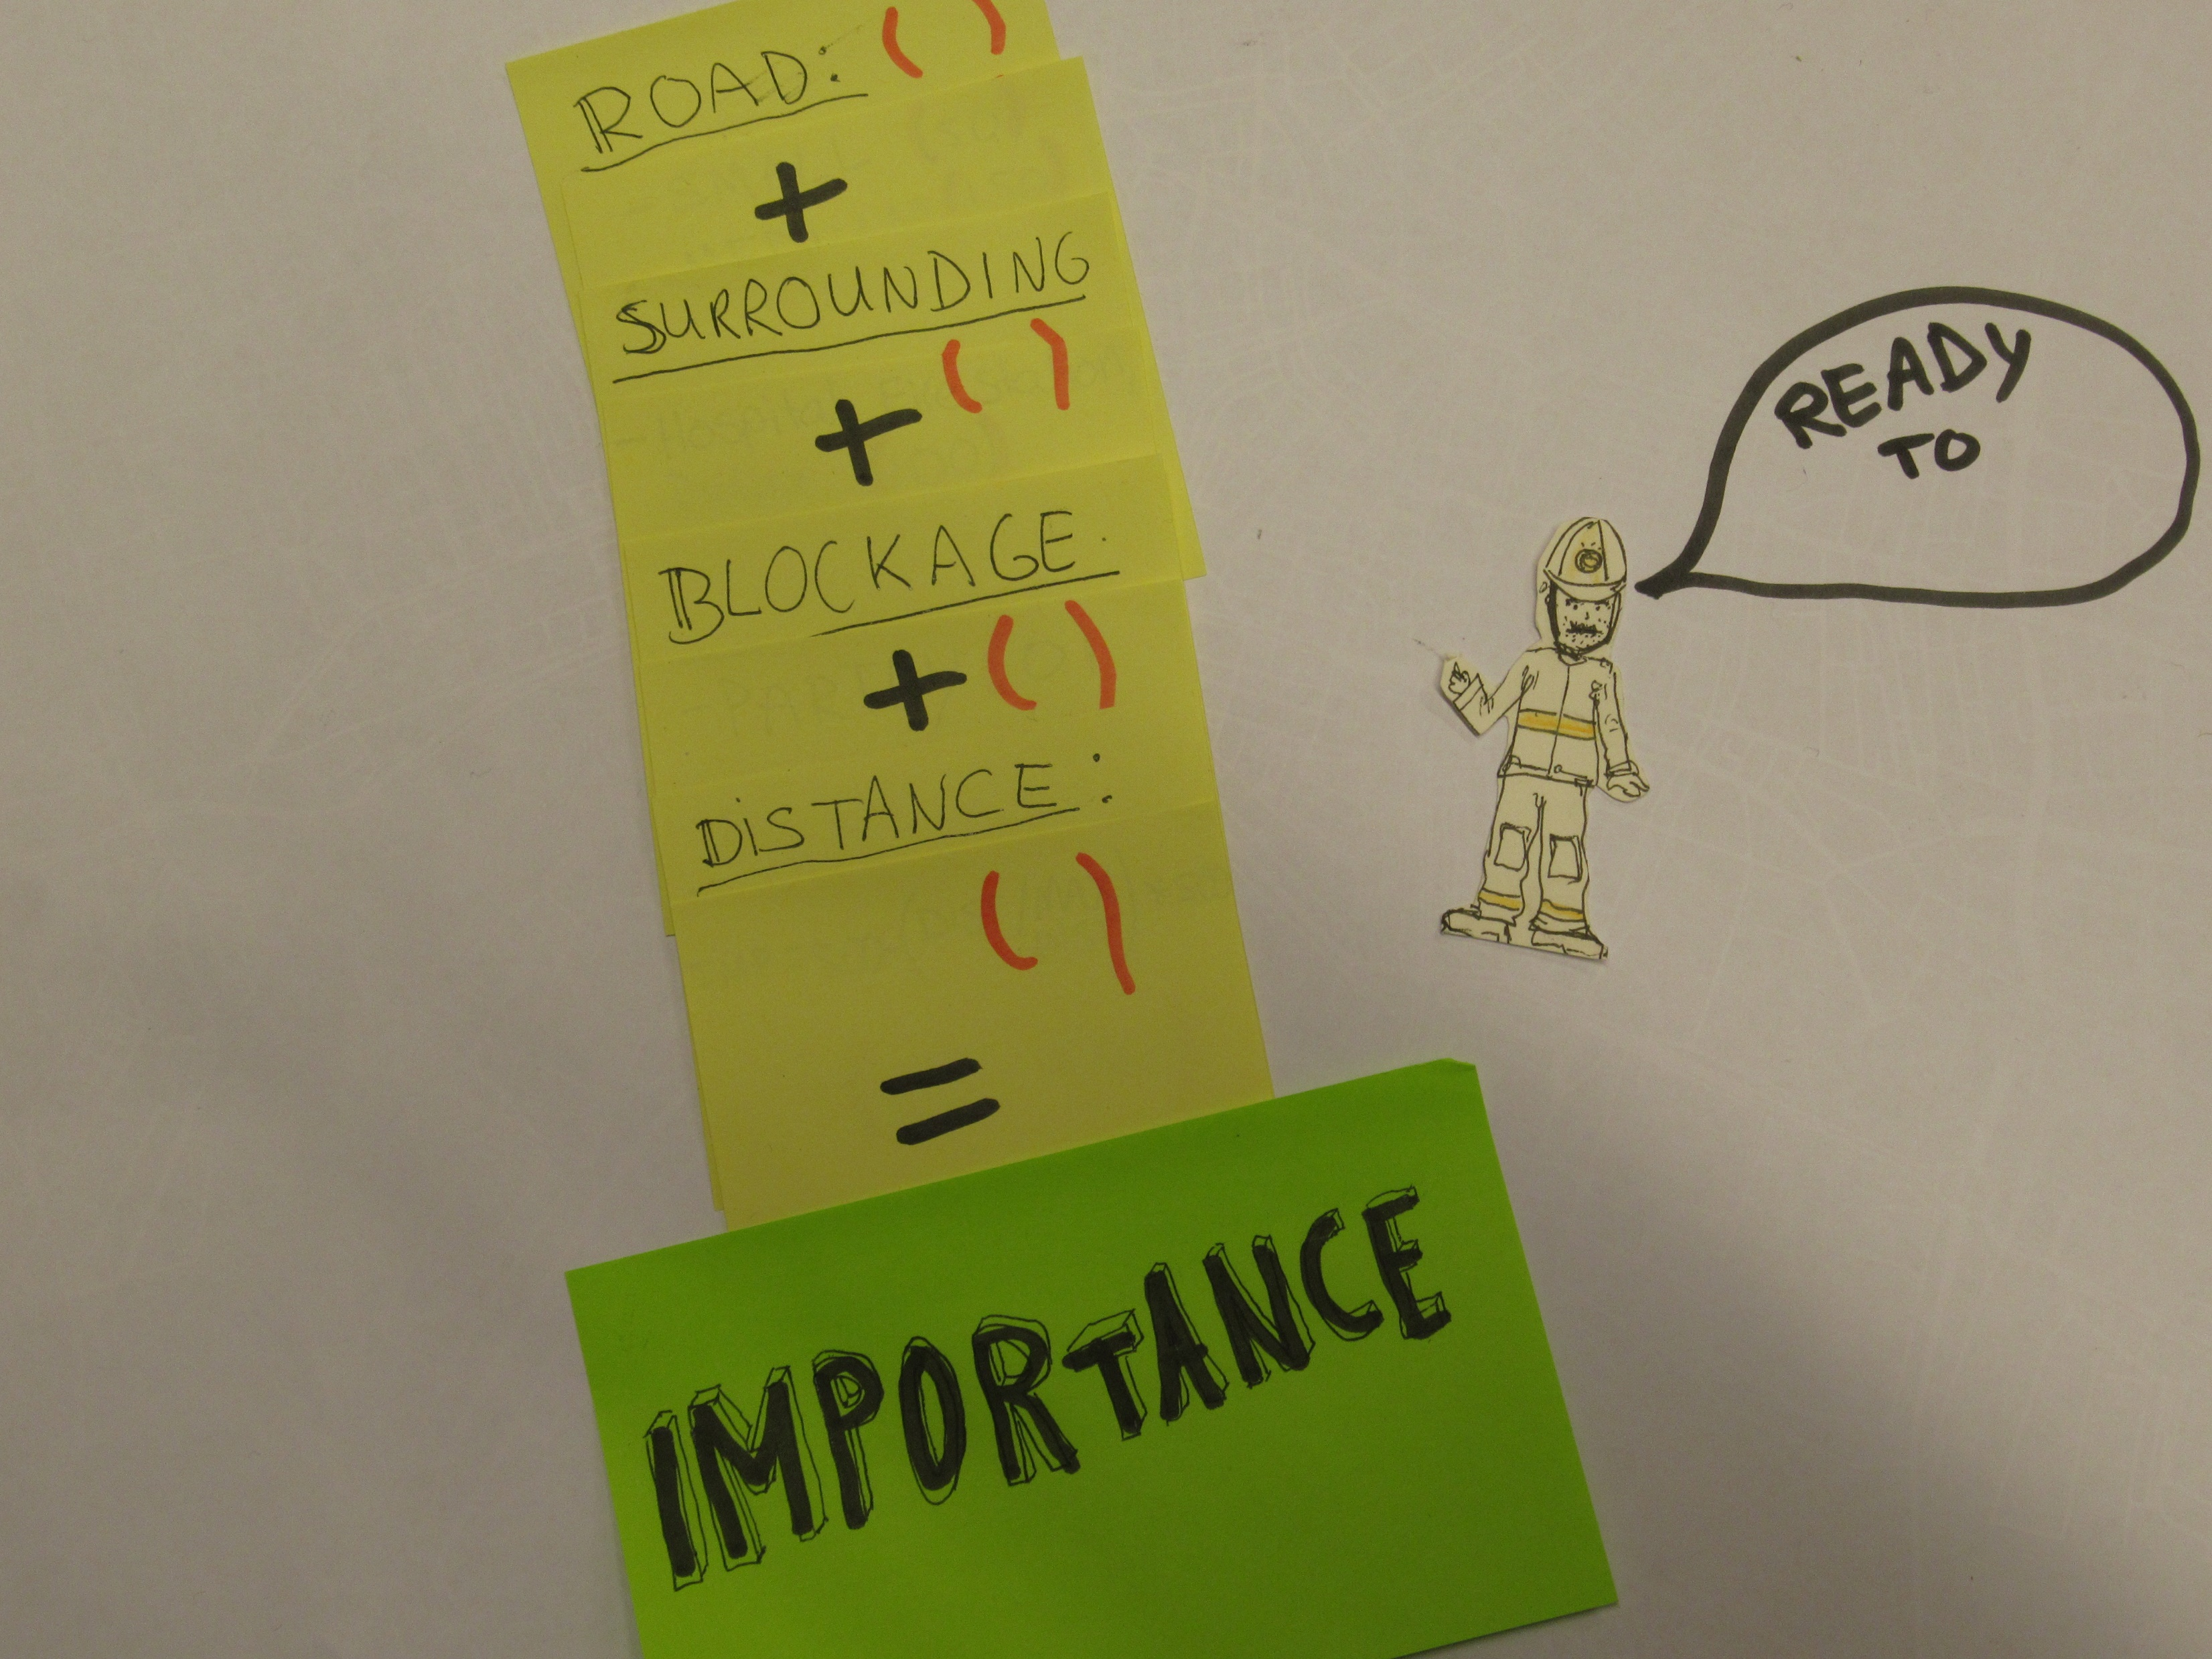 ROAD: ( )
+
SURROUNDING
+ ( )
BLOCKAGE.
+ ( )
DiSTANCE:
( )
=
IMPORTANCE
READY
TO